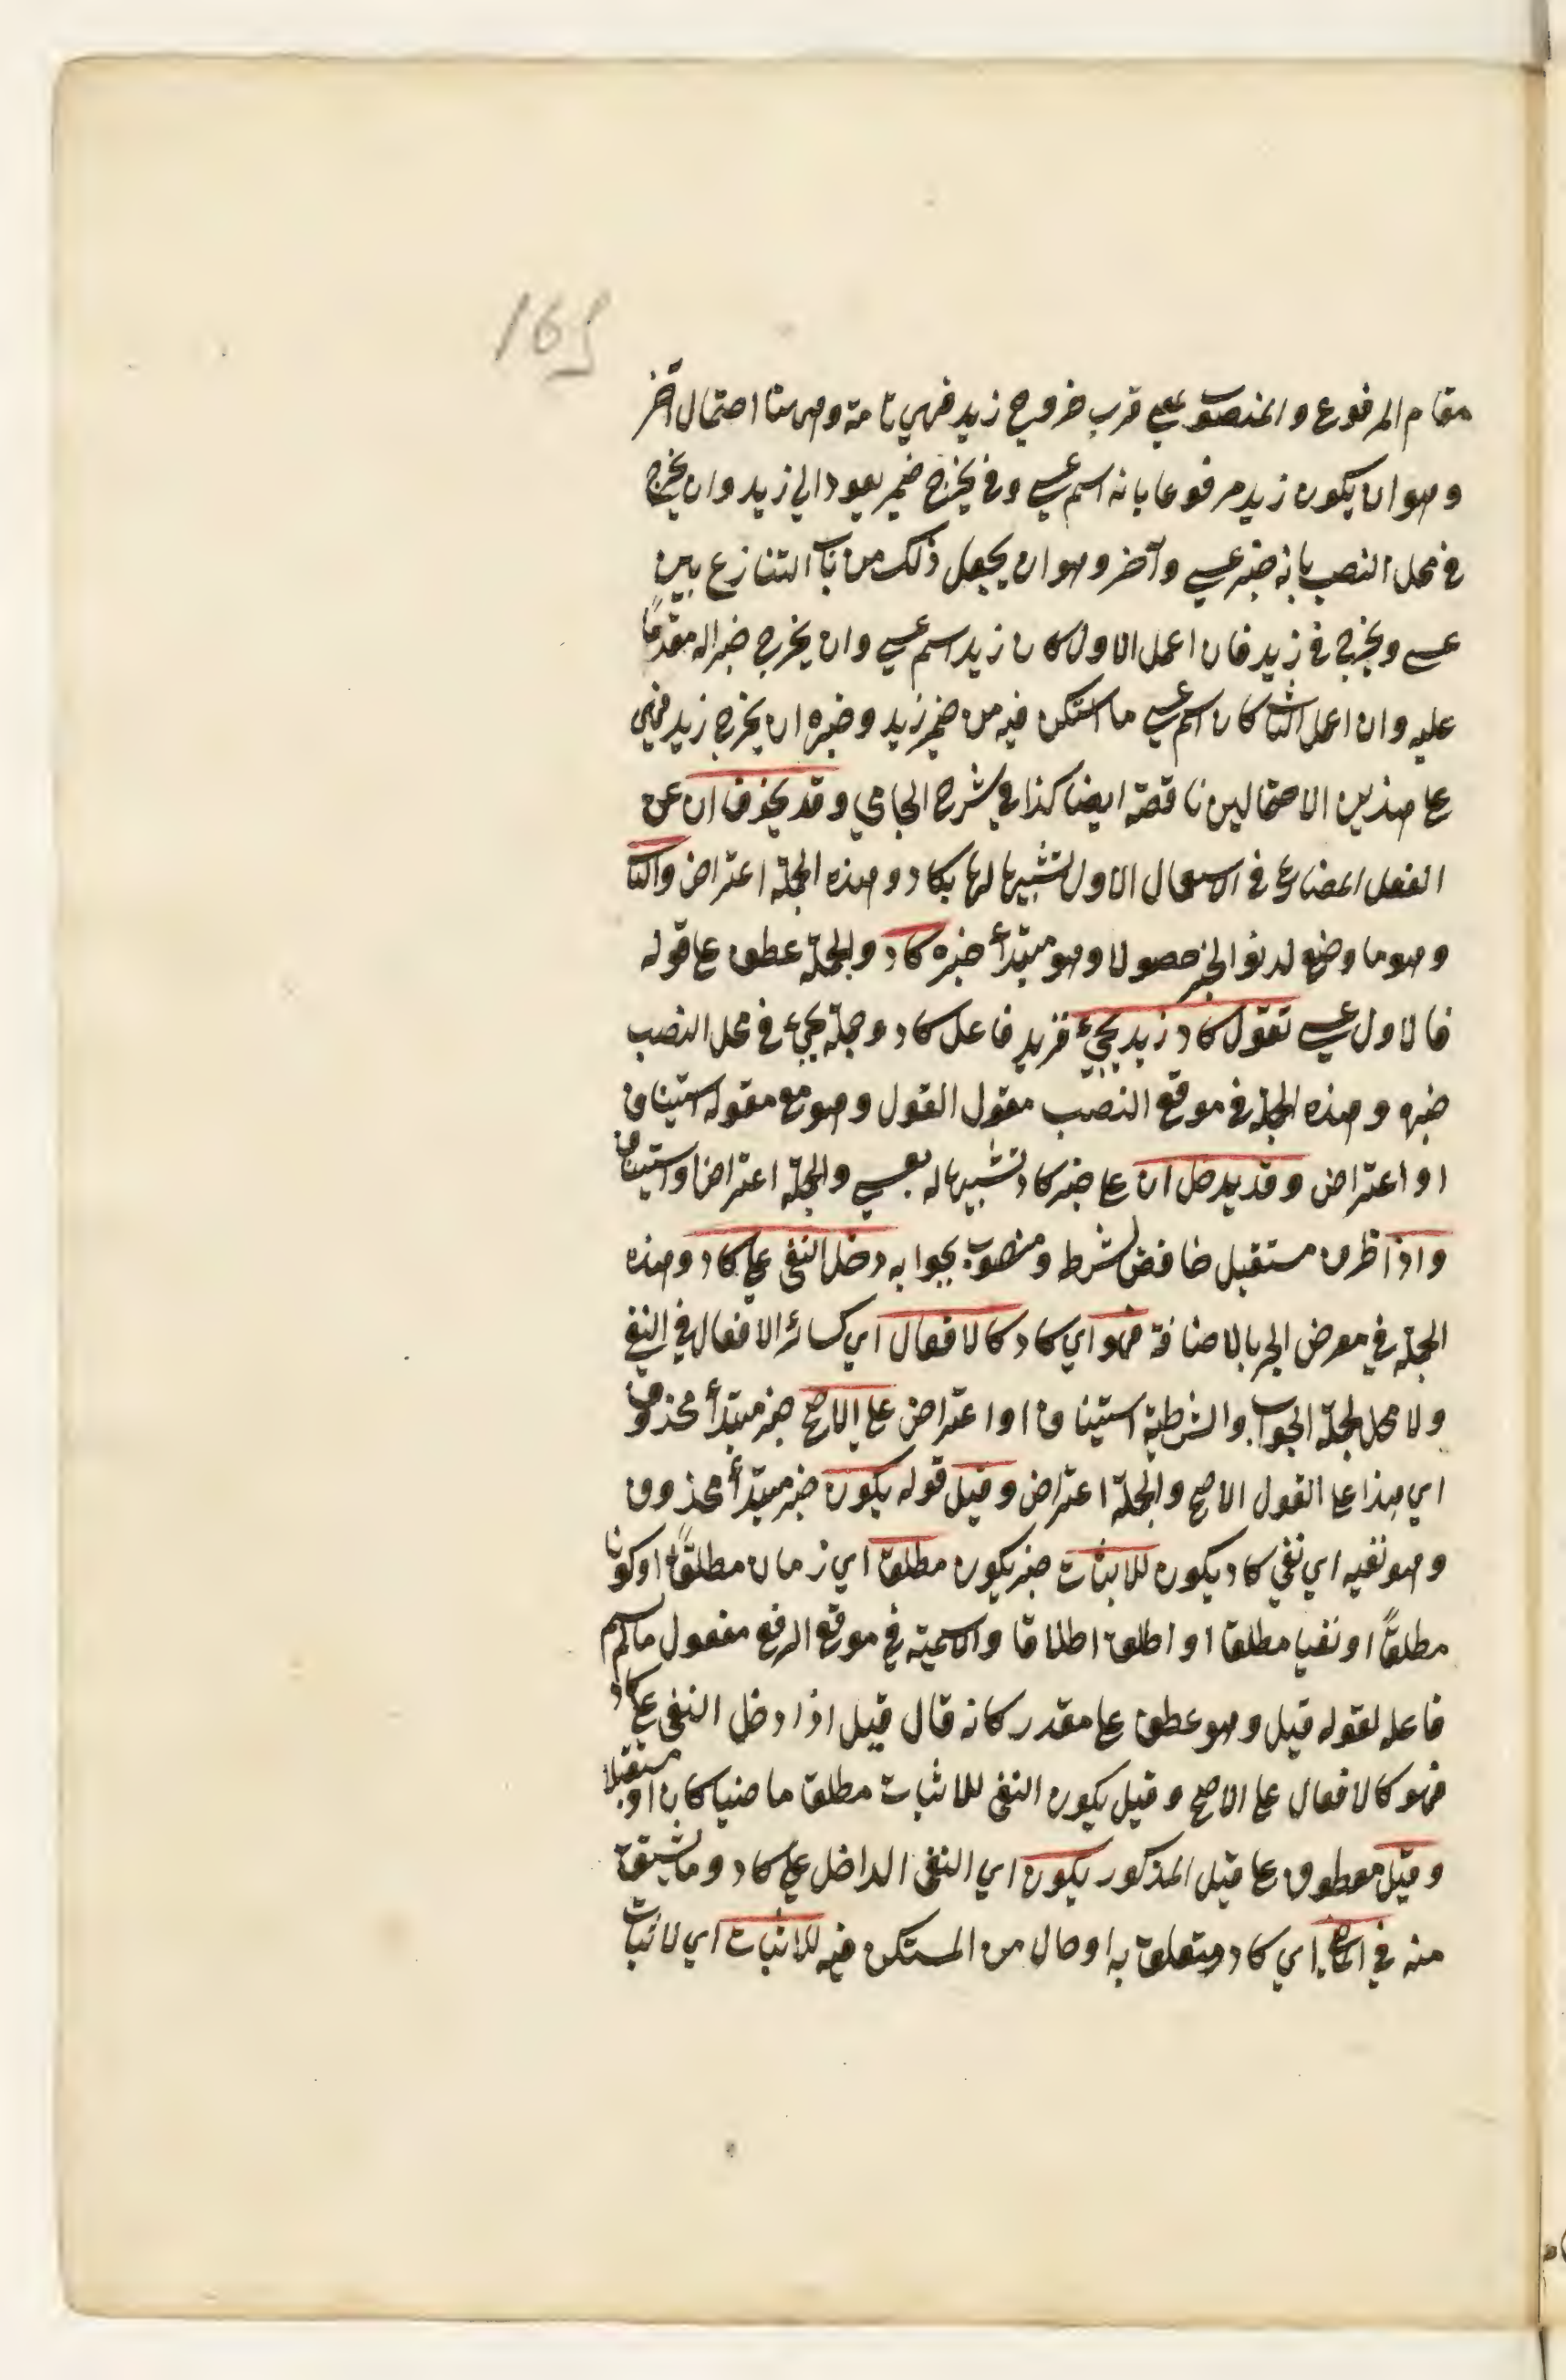 165
مقام المرفوع والمنصوب بمعنى قرب خروج زيد فهي تامة وههنا احتمال آخر
وهو ان يكون زيد مرفوعا بانه اسم عسى وفي يخرج ضمير يعود الى زيد وان يخرج
في محل النصب بانه خبر عسى وآخر وهو ان يجعل ذلك من باب التنازع بين
عسى ويخرج في زيد فان اعمل الاول كان زيد اسم عسى وان يخرج خبرا له مقدما
عليه وان اعمل الثاني كان اسم عسى ما استكن فيه من ضمير زيد وخبره ان يخرج زيد فهي
على هذين الاحتمالين ناقصة ايضا كذا في شرح الجامي وقد يحذف ان عن
الفعل المضارع في الاستعمال الاول لتشبيهها لها بكاد وهذه الجملة اعتراض والثاني
وهو ما وضع لدنو الخبر حصولا وهو مبتدأ خبره كاد والجملة عطف على قوله
فالاول عسى تقول كاد زيد يجيء فزيد فاعل كاد وجملة يجيء في محل النصب
خبره وهذه الجملة في موقع النصب مقول القول وهو مع مقوله استيناف
او اعتراض وقد يدخل ان على خبر كاد تشبيها له بعسى والجملة اعتراض او استيناف
واذا ظرف مستقبل خافض لشرطه ومنصوب بجوابه دخل النفي على كاد وهذه
الجملة في معرض الجر بالاضافة فهو اي كاد كالافعال اي كسائر الافعال في النفي
ولا محل لجملة الجواب والشرطية استيناف او اعتراض على الاصح خبر مبتدأ محذوف
اي هذا على القول الاصح والجملة اعتراض وقيل قوله يكون خبر مبتدأ محذوف
وهو نفيه اي نفي كاد يكون للاثبات خبر يكون مطلقا اي زمان مطلقا او كونا
مطلقا او نفيا مطلقا او اطلق اطلاقا والاسمية في موقع الرفع مفعول ما لم يسم
فاعله لقوله قيل وهو عطف على مقدر كانه قال قيل اذا دخل النفي على كاد
فهو كالافعال على الاصح وقيل يكون النفي للاثبات مطلقا ماضيا كان او مستقبلا
وقيل معطوف على قيل المذكور يكون اي النفي الداخل على كاد وما يشتق
منه في الماضي اي كاد متعلق به او حال من المستكن فيه للاثبات اي لاثبات